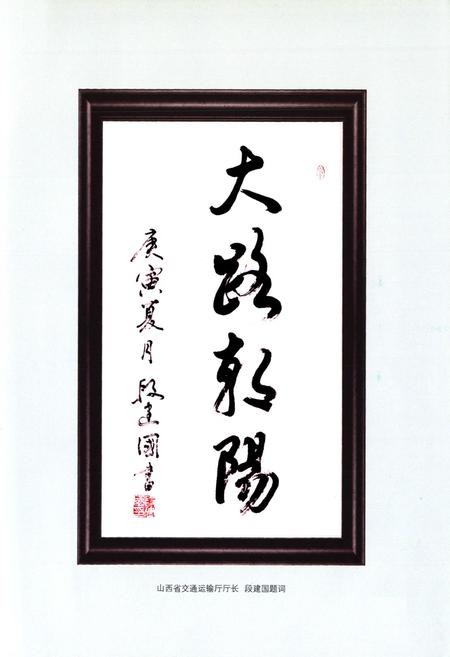 大路朝陽
庚寅夏月 段建國書
山西省交通运输厅厅长 段建国题词